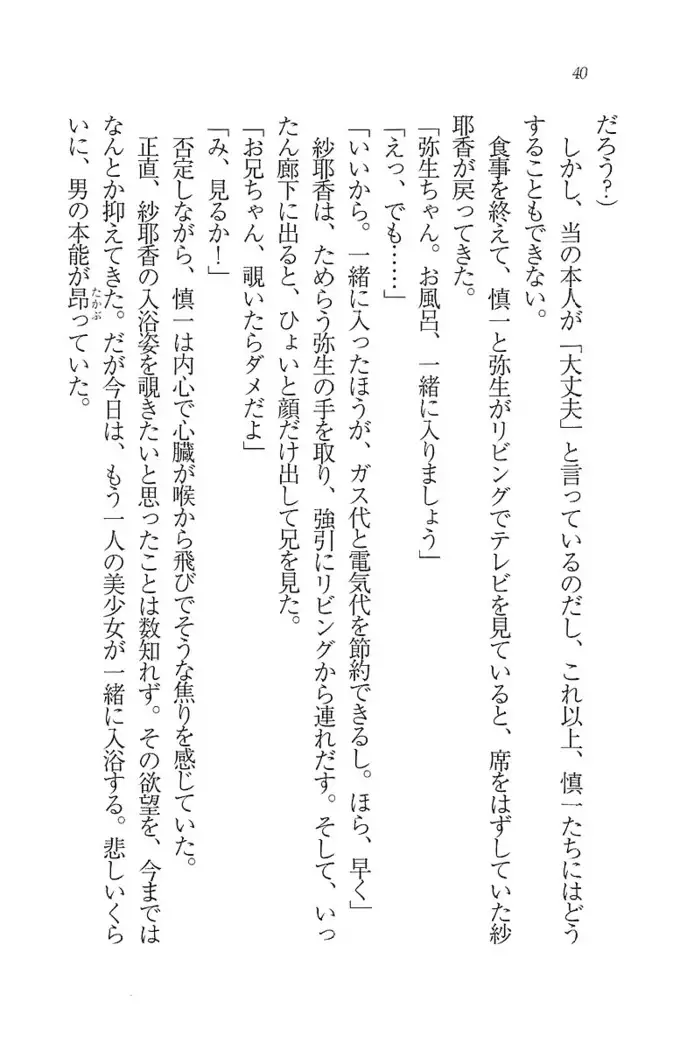 40
だろう？）
しかし、当の本人が「大丈夫」と言っているのだし、これ以上、慎一たちにはどう
することもできない。
食事を終えて、慎一と弥生がリビングでテレビを見ていると、席をはずしていた紗
耶香が戻ってきた。
「弥生ちゃん。お風呂、一緒に入りましょう」
「えっ、でも……」
「いいから。一緒に入ったほうが、ガス代と電気代を節約できるし。ほら、早く」
紗耶香は、ためらう弥生の手を取り、強引にリビングから連れだす。そして、いっ
たん廊下に出ると、ひょいと顔だけ出して兄を見た。
「お兄ちゃん、覗いたらダメだよ」
「み、見るか！」
否定しながら、慎一は内心で心臓が喉から飛びでそうな焦りを感じていた。
正直、紗耶香の入浴姿を覗きたいと思ったことは数知れず。その欲望を、今までは
なんとか抑えてきた。だが今日は、もう一人の美少女が一緒に入浴する。悲しいくら
いに、男の本能が昂っていた。
たかぶ